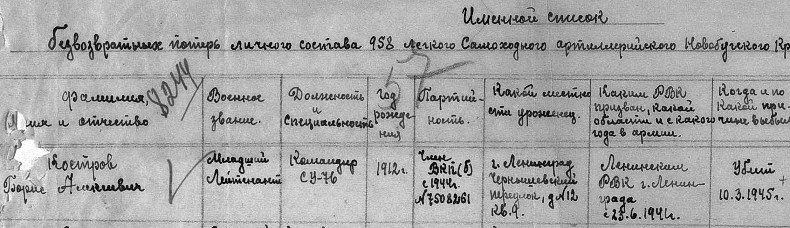 Именной список
безвозвратных потерь личного состава 958 легкого Самоходного артиллерийского Новобугского Кр
8244
57
Фамилия, Имя и отчество
Военное звание.
Должность и специальность
год рождения
Партийность.
Какой местности уроженец.
Каким РВК призван, какой области и с какого года в армии.
Когда и по какой причине выбыл
Костров Борис Алексеевич
Младший Лейтенант
Командир СУ-76
1912г.
Член ВКП(б) с 1944г. N7508261
г. Ленинград Чернышевский переулок, д N12 кв.9.
Ленинским РВК г. Ленинграда с 23.6.1941г.
Убит 10.3.1945г.